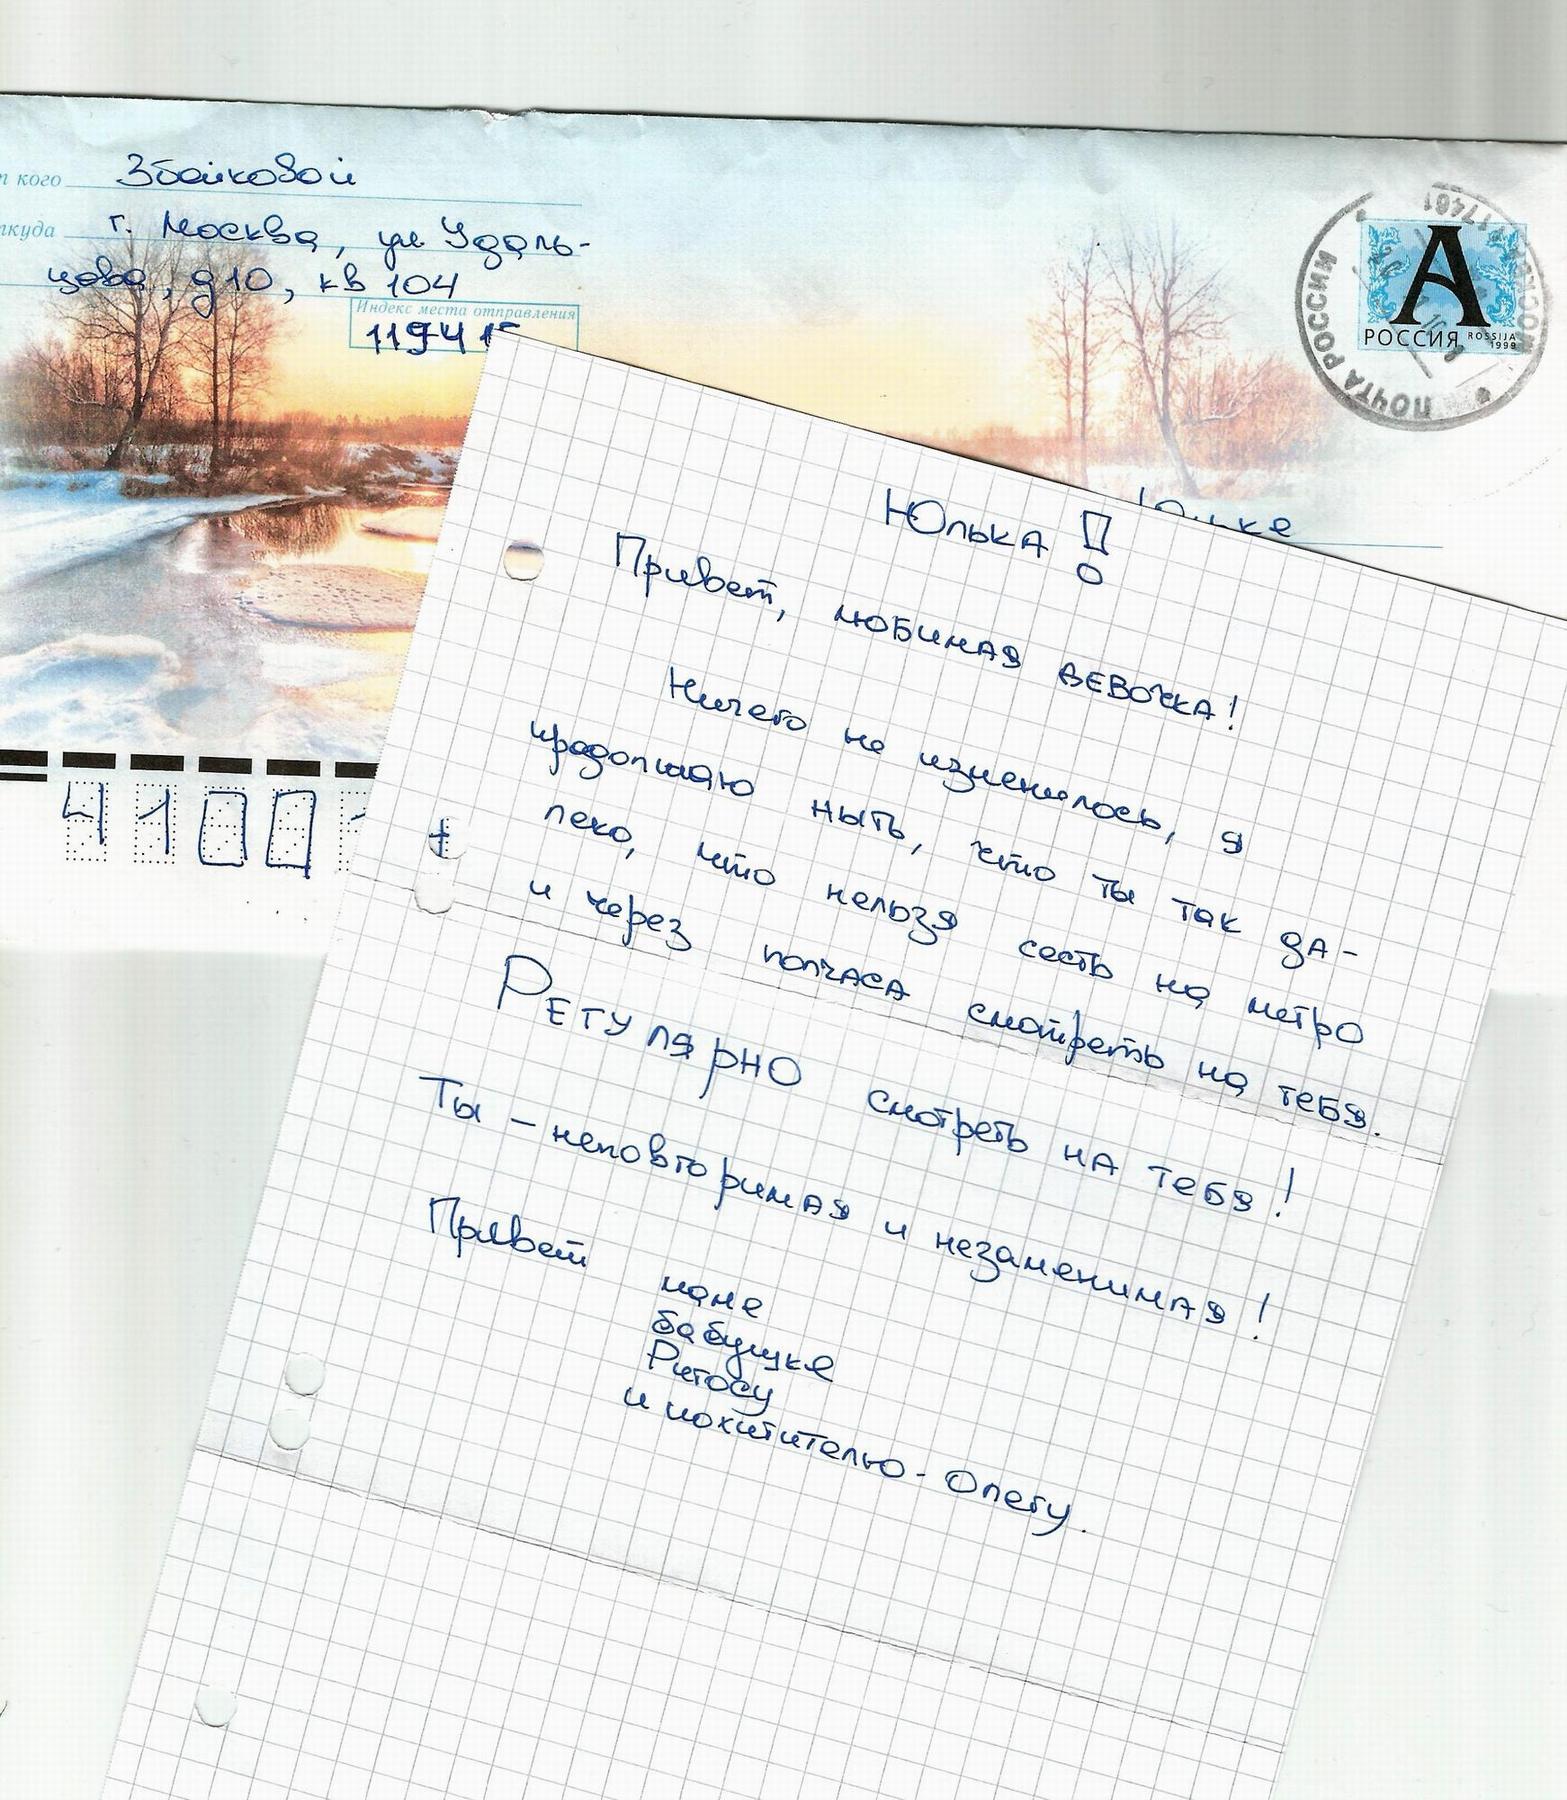 т кого Збойковой
ткуда г. Москва, ул Удаль-
цова, д 10, кв 104
Индекс места отправления
11941
ПОЧТА РОССИИ
117461
А
РОССИЯ ROSSIJA
1999
4100
Юлька!
Привет, любимая девочка!
Ничего не изменилось, я
продолжаю ныть, что ты так да-
леко, что нельзя сесть на метро
и через полчаса смотреть на тебя.
РЕГУЛЯРНО смотреть на тебя!
Ты – неповторимая и незаменимая!
Привет маме
бабушке
Ритосу
и похитителю - Олегу.